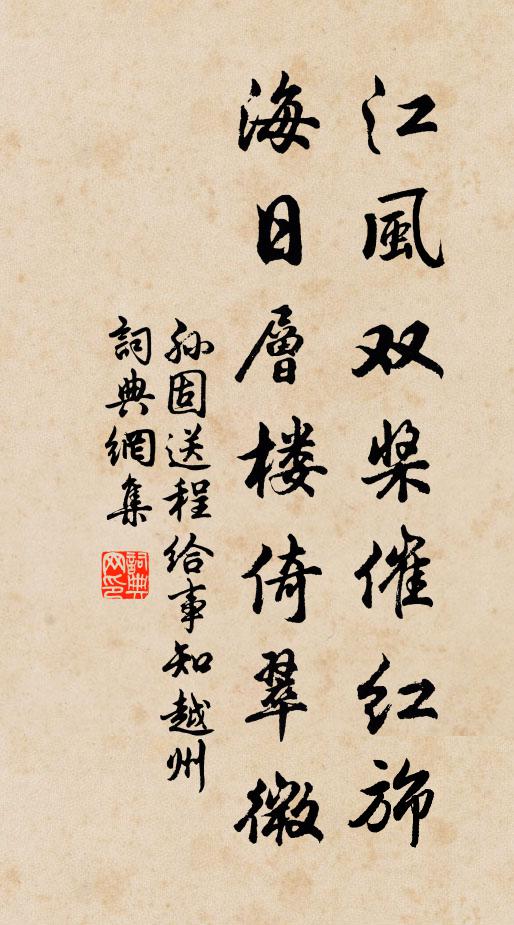 江風双桨催红旆
海日層楼倚翠微
孙固送程给事知越州
詞典網集
詞典
网印